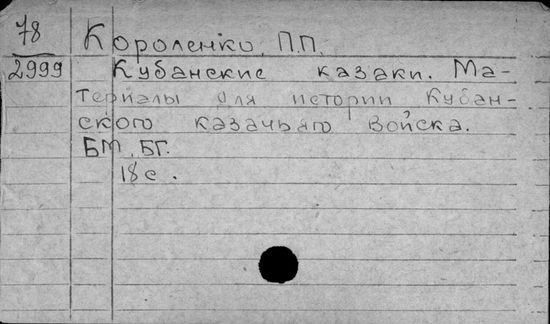 78
2999
Короленко, П.П.
Кубанские казаки. Ма-
териалы для истории Кубан-
ского казачьяго войска.
БМ, БГ.
18 с.